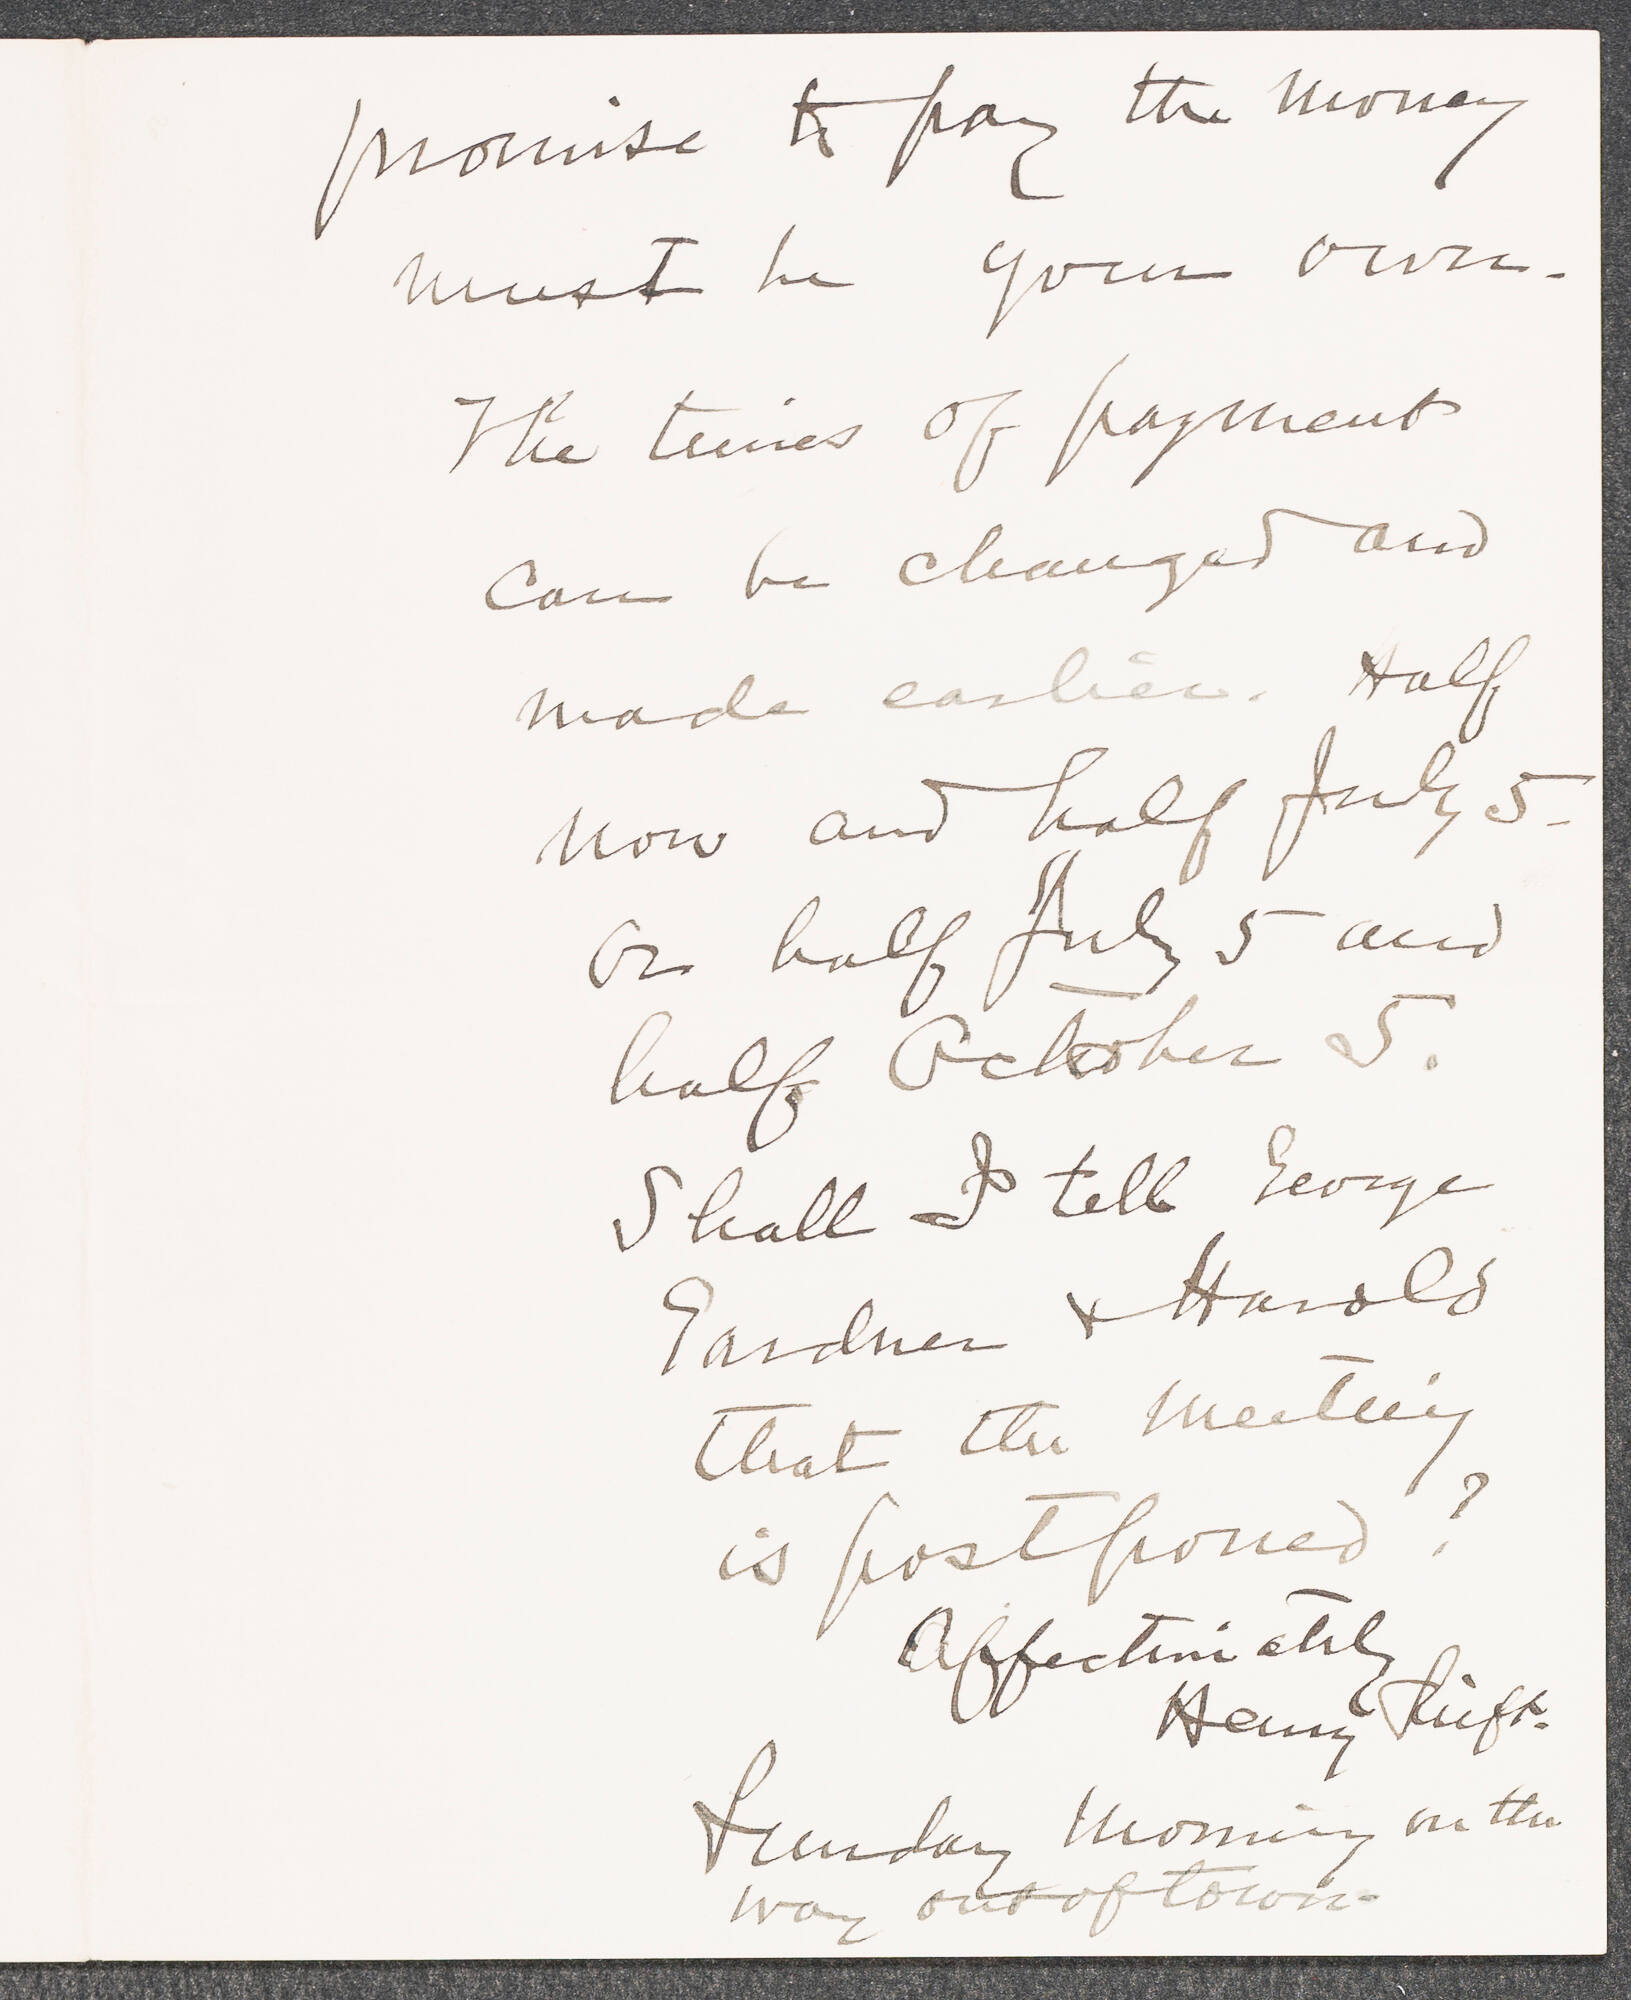 promise to pay the money
must be your own.
The times of payment
can be changed and
made earlier. Half
now and half July 5.
or half July 5 and
half October 5.
Shall I tell George
Gardner & Harold
that the meeting
is postponed?
Affectionately
Henry
Sunday morning on the
way out of town.